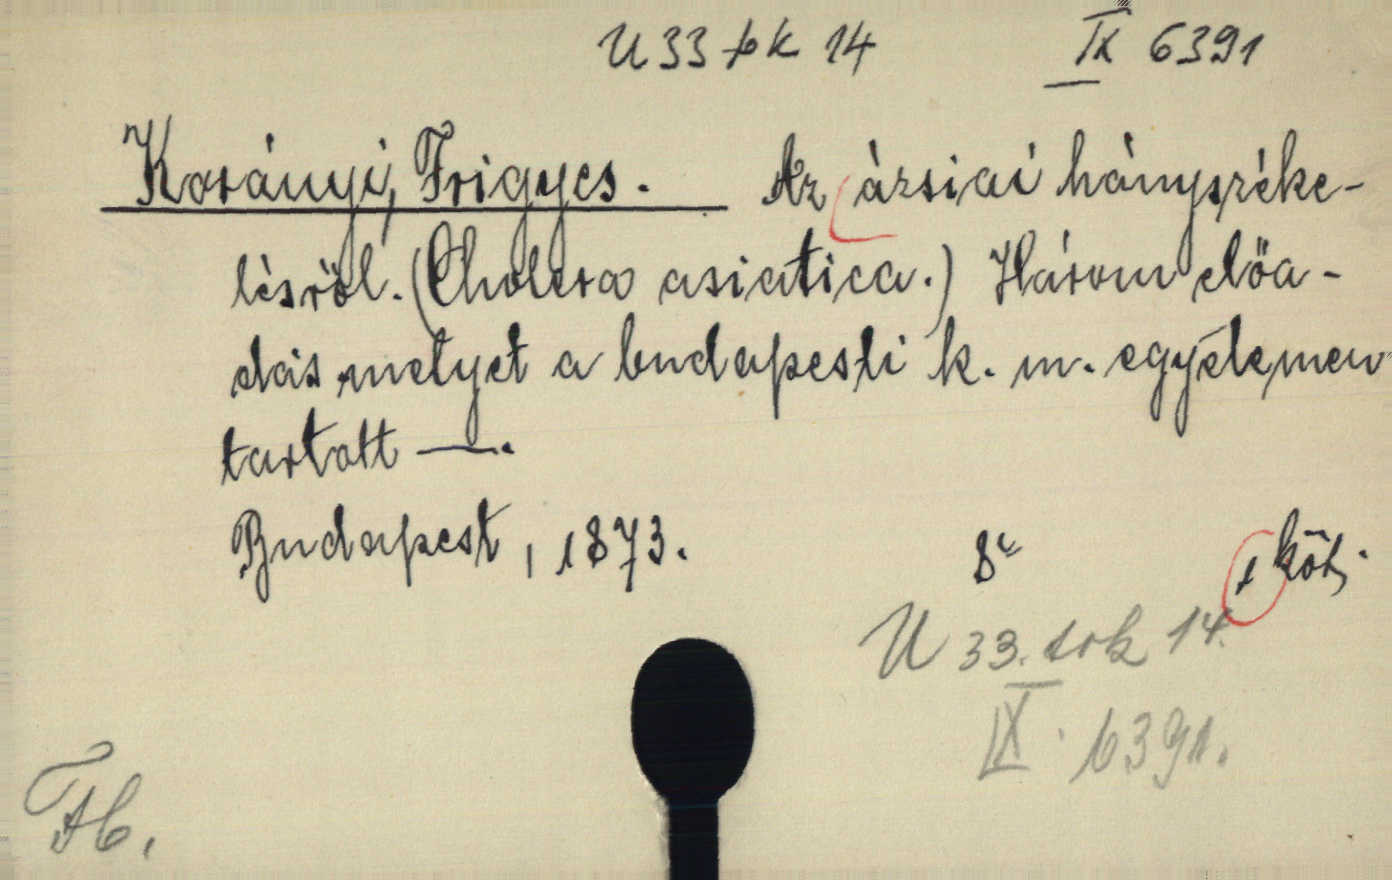 U 33 tok 14 IX 6391
Korányi, Frigyes. Az ázsiai hányszéke-
lésről. (Cholera asiatica.) Három előa-
dás melyet a budapesti k. m. egyetemen
tartott —.
Budapest, 1873. 8° 1 köt.
U 33. tok 14.
IX. 6391.